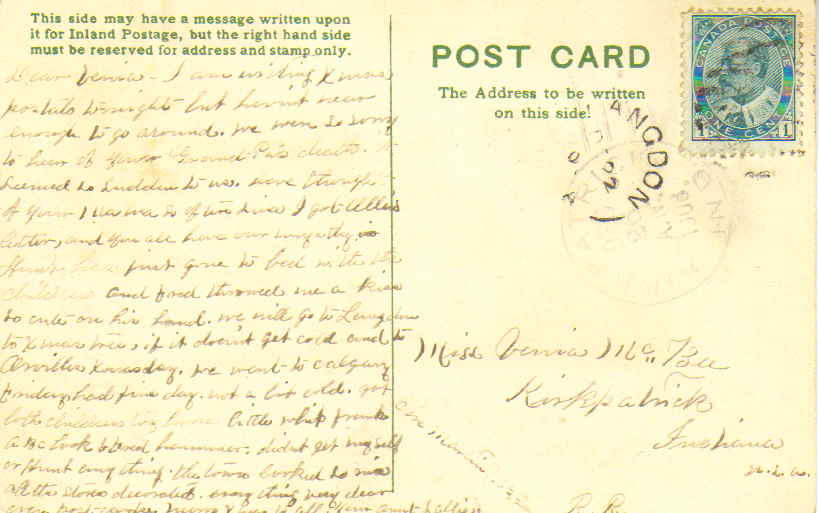 This side may have a message written upon
it for Inland Postage, but the right hand side
must be reserved for address and stamp only.
POST CARD
The Address to be written
on this side.
CANADA POSTAGE
ONE CENT
1 1
LANGDON
Dear Venia - I am writing Xmas
postals tonight but haven't near
enough to go around. we were so sorry
to hear of your Grand Pa's death. It
seemed so sudden to us. have thought
of your Mama so often since I got
letter, and you all have our sympathy
Hunt has just gone to bed with the
children and Fred throwed me a kiss
so cute on his hand. we will go to Langdon
to Xmas tree, if it doesn't get cold and to
Orvilles Xmas day. we went to Calgary
Friday had fine day. not a bit cold. got
both children toy horse little whip
a Bc book & Fred hammer. didn't get myself
or Hunt any thing. the town looked so nice
all the stores decorated. everything very dear
even post-cards. to all. Your aunt
Miss Venia McBee
Kirkpatrick
Indiana
U.S.A.
R.R.